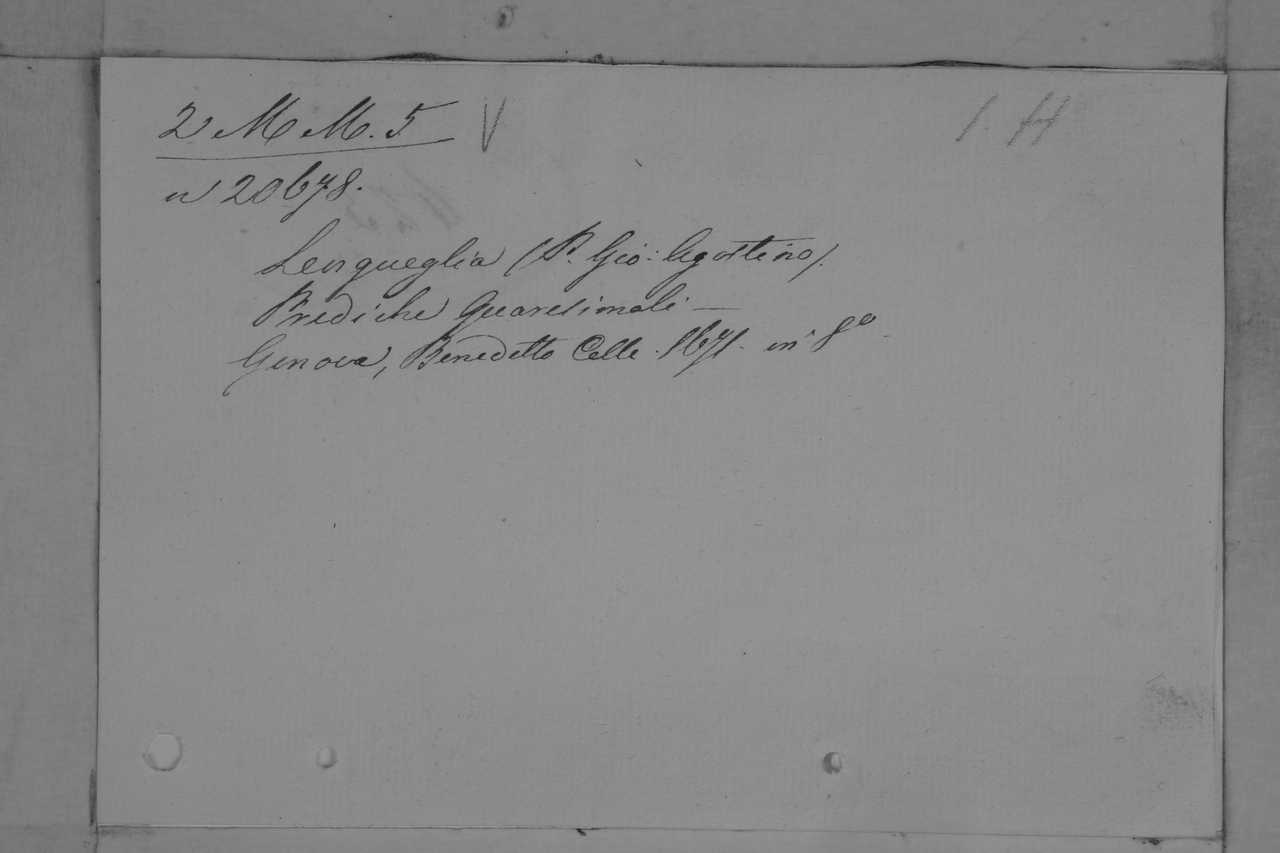 2 M M. 5 V
n 20678.
Lengueglia (P. Gio: Agostino).
Prediche Quaresimali —
Genova, Benedetto Celle. 1671. in 8º